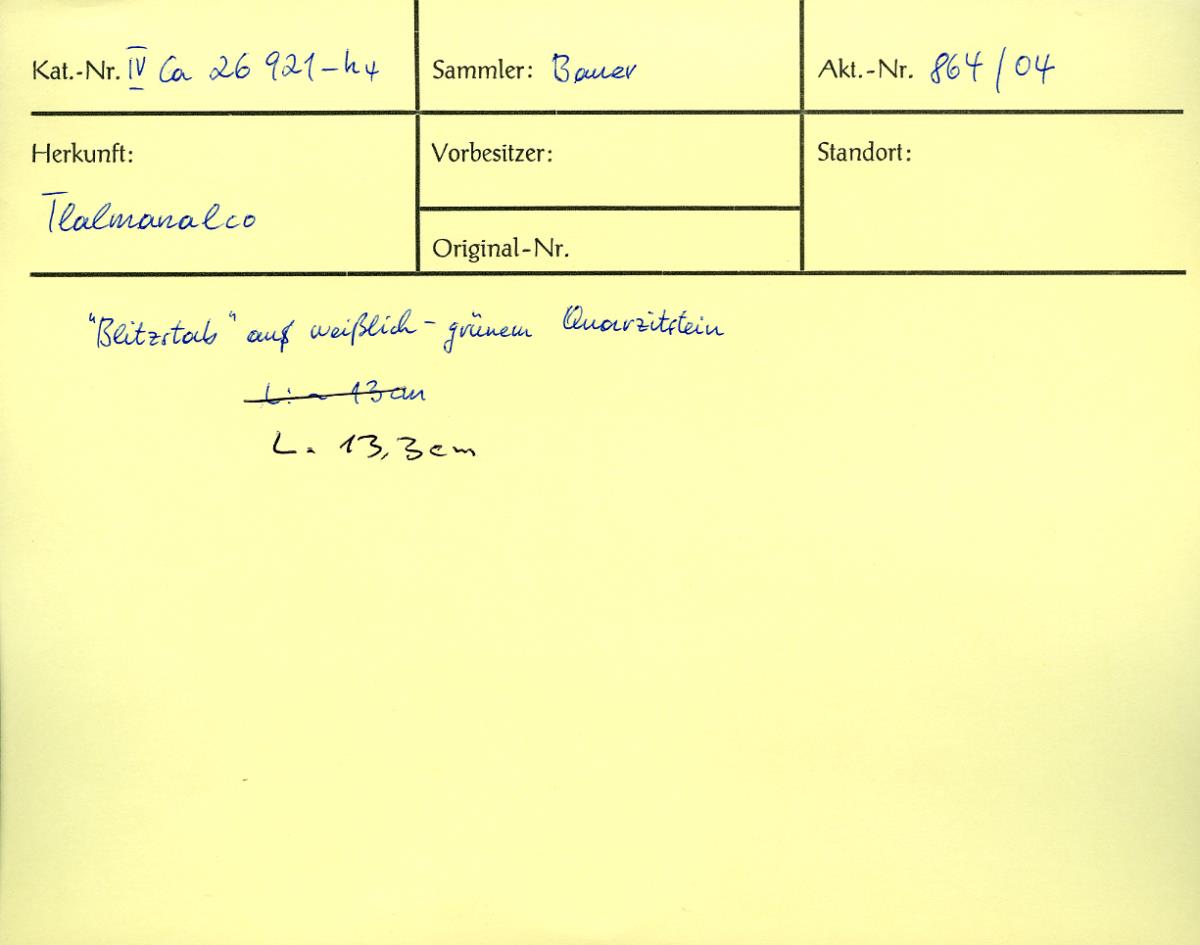 Kat.-Nr. IV Ca 26 921-h4
Sammler: Bauer
Akt.-Nr. 864/04
Herkunft:
Tlalmanalco
Vorbesitzer:
Original-Nr.
Standort:
"Blitzstab" auf weißlich-grünem Quarzitstein
L: ~ 13 cm
L. 13,3 cm